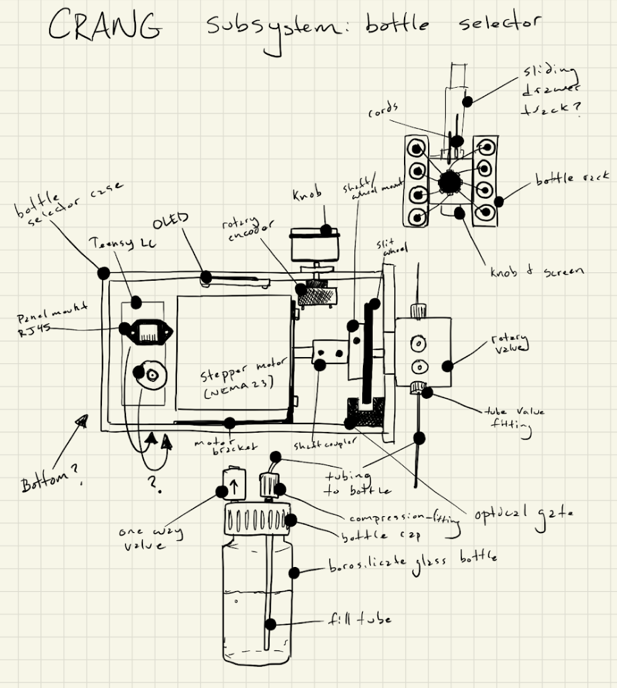 CRANG subsystem: bottle selector
sliding
drawer
track?
cords
bottle rack
knob & screen
bottle
selector case
Teensy LC
OLED
rotary
encoder
Knob
shaft/
wheel mount
slit
wheel
Panel mount
RJ45
Stepper motor
(NEMA23)
rotary
valve
tube valve
fitting
motor
bracket
shaft coupler
Bottom?
?
tubing
to bottle
optical gate
one way
valve
compression fitting
bottle cap
borosilicate glass bottle
fill tube